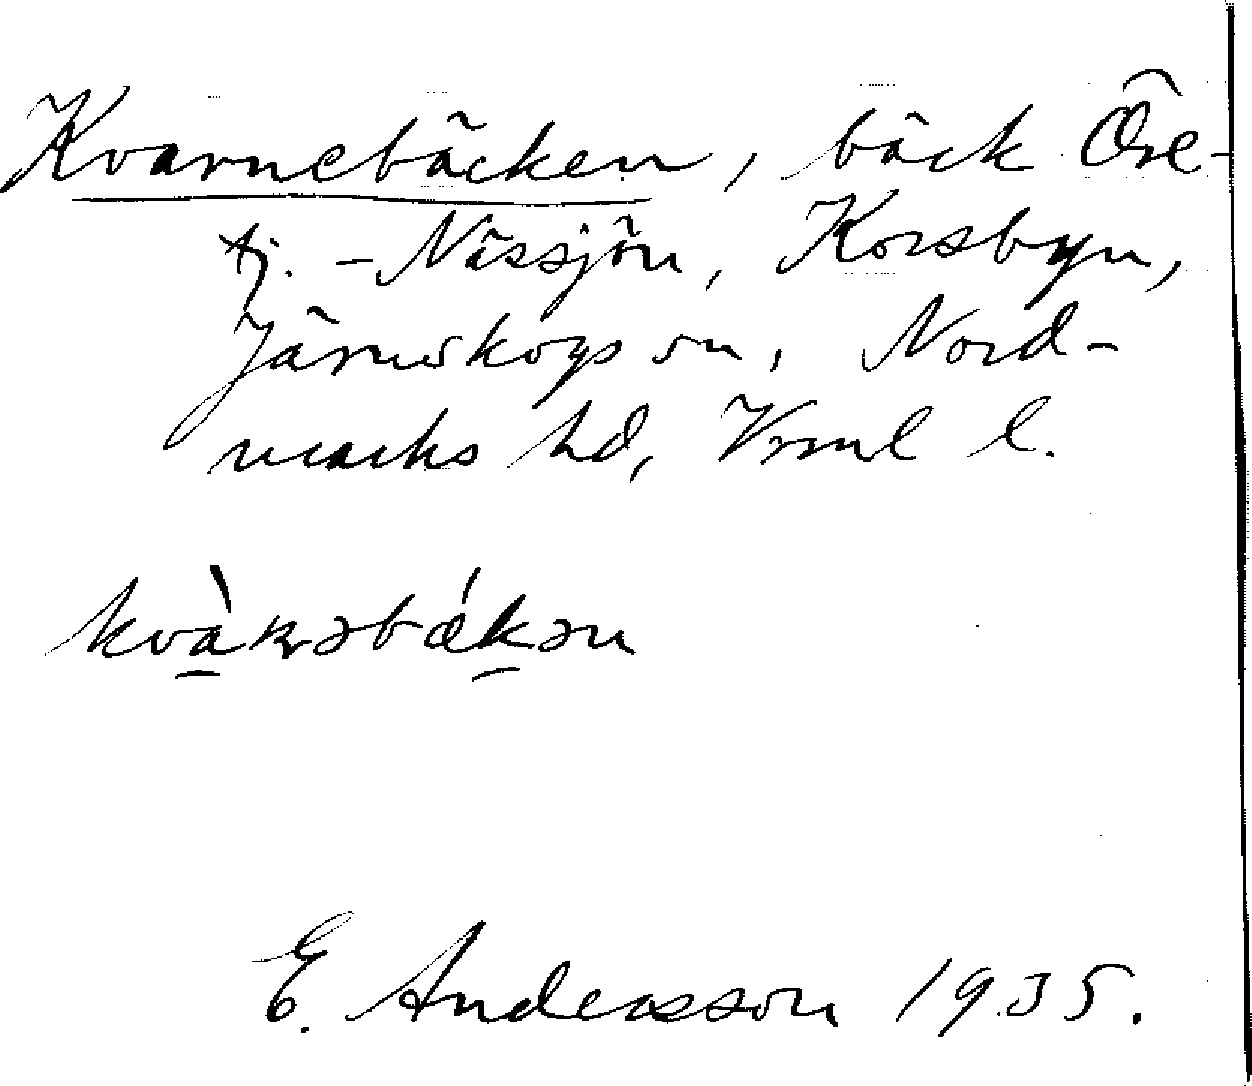 Kvarnebäcken, bäck Öre-
tj. - Nässjön, Korsbyn,
Järnskogs sn, Nord-
marks hd, Vrml l.
kvàɳəbǽkən
E. Andersson 1935.